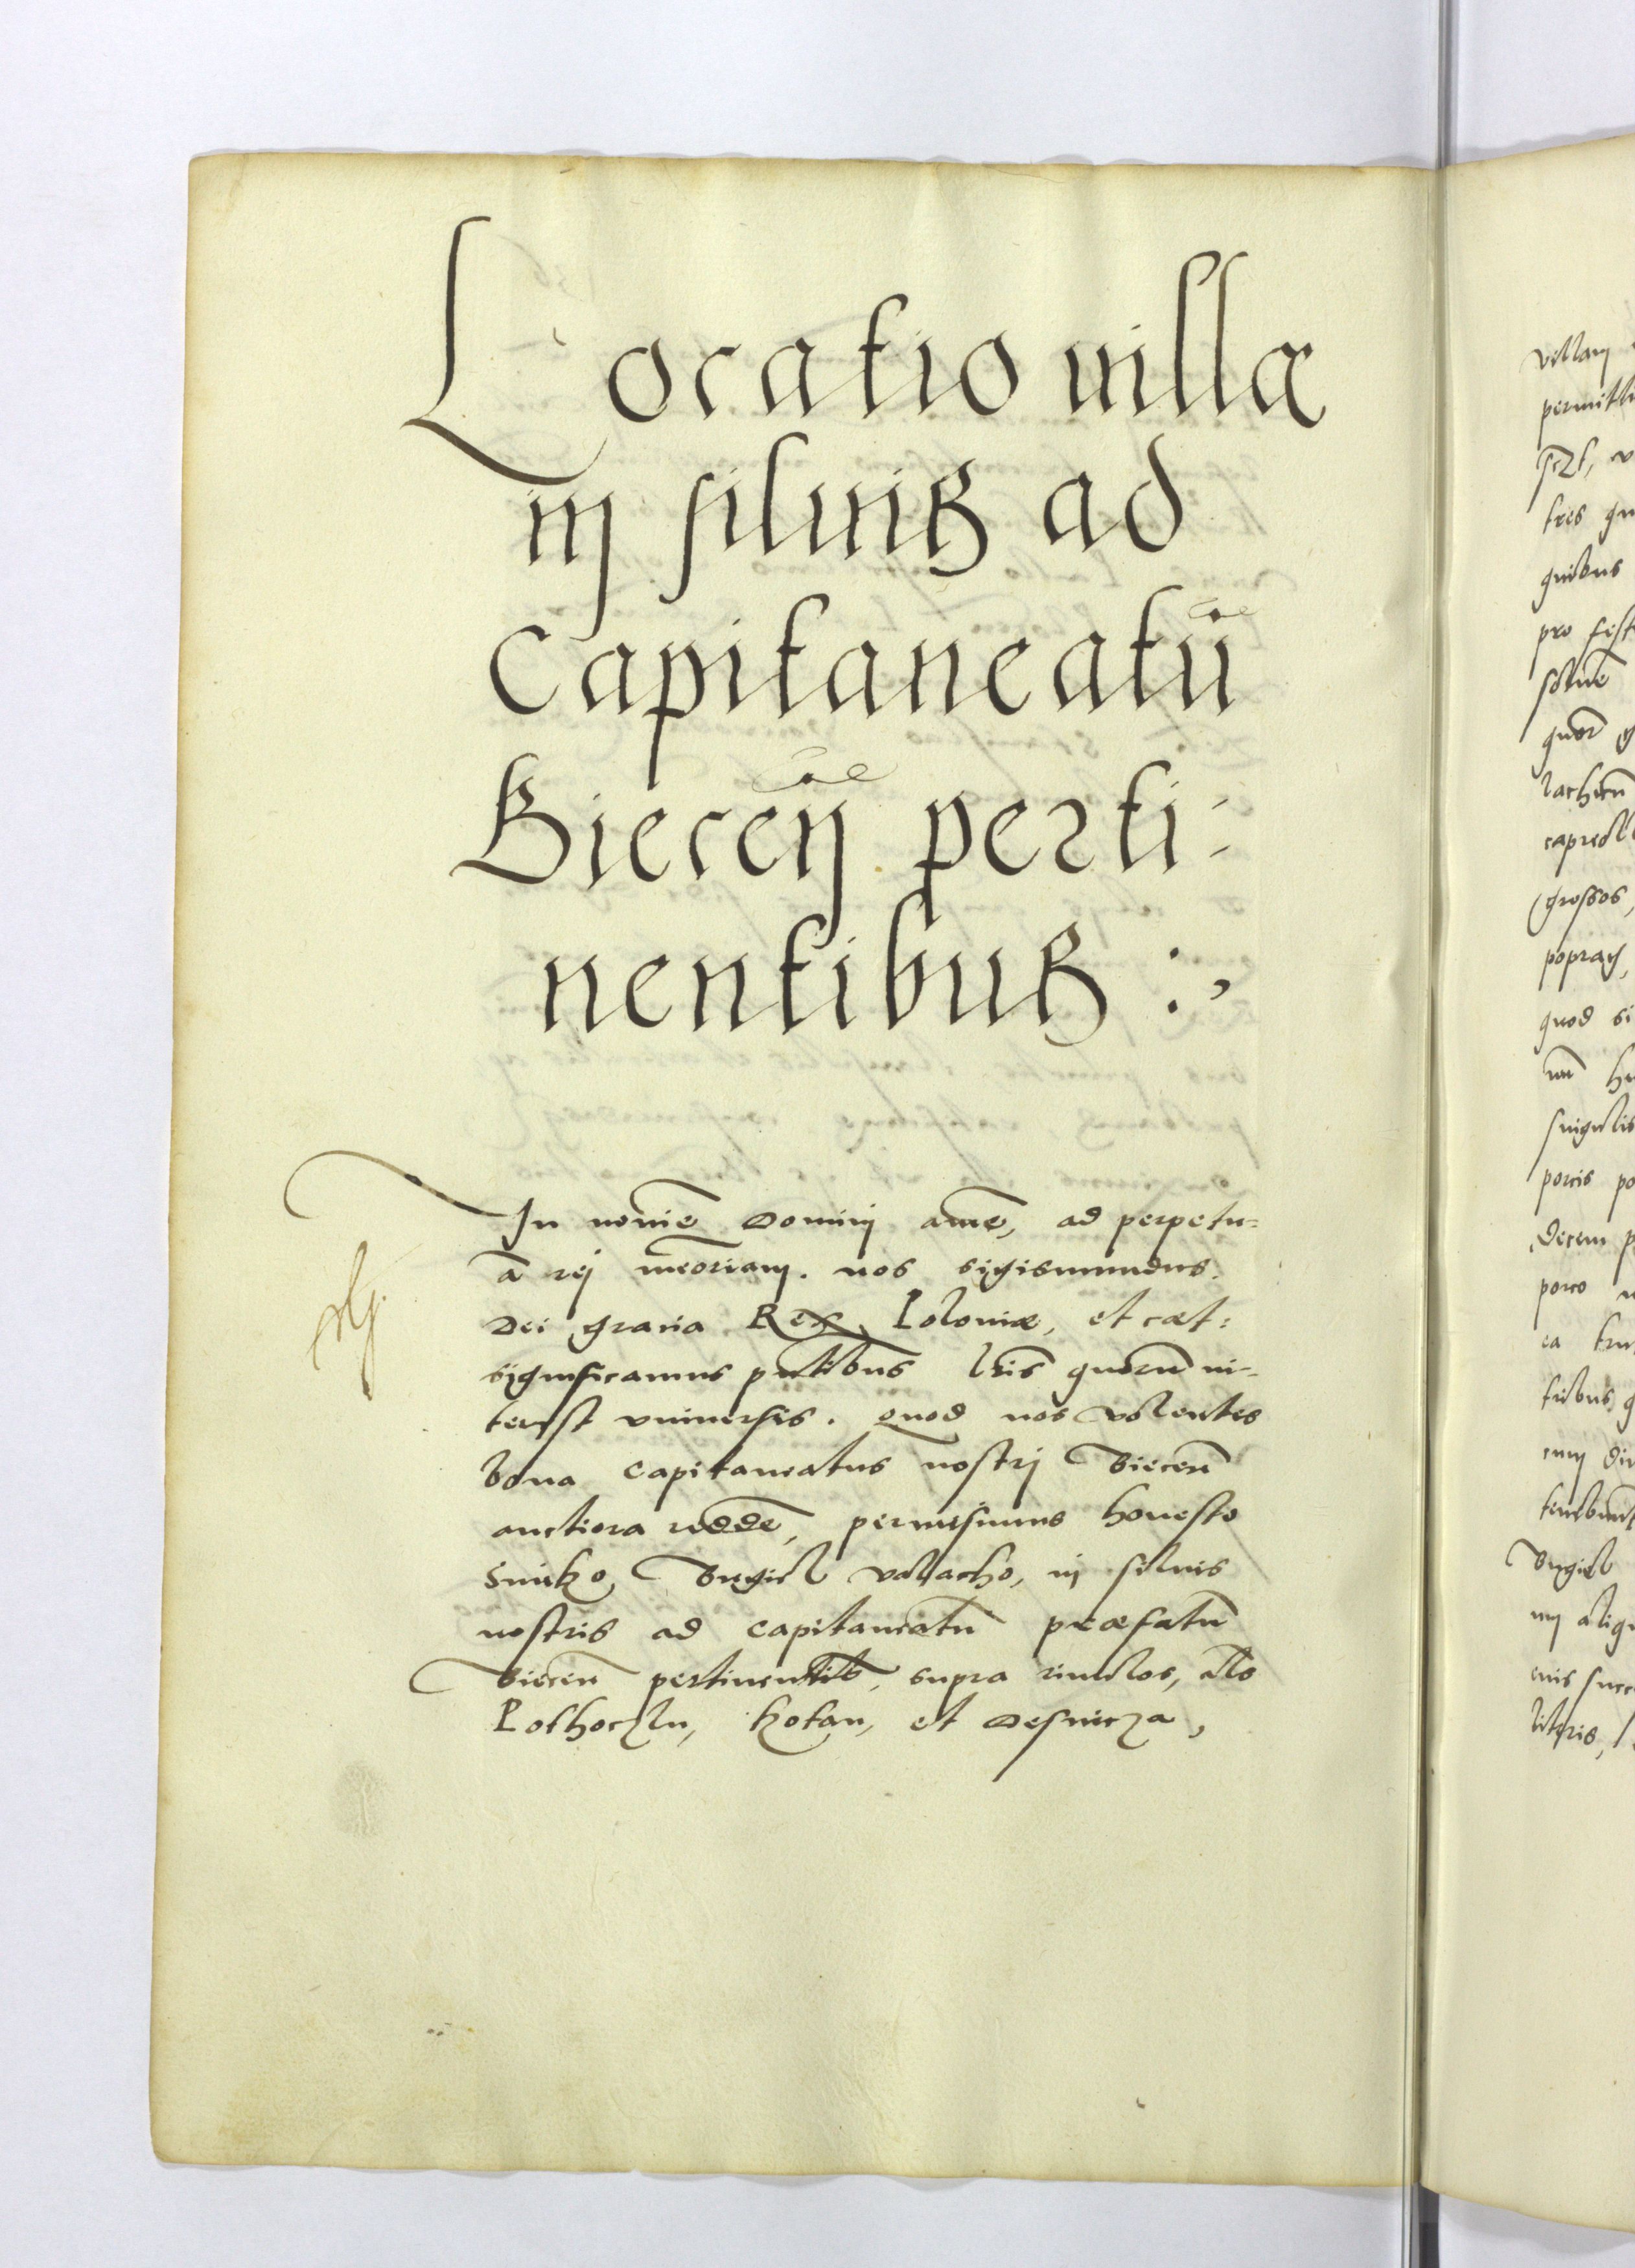 Locatio uillæ
in siluis ad
Capitaneatū
Biecen̄ perti-
nentibus :,
In nomīe Domini amē, ad perpetu-
ā rei mēoriam. nos Sigismundus.
Dei gratia Rex Poloniæ, et cæt:
significamus pn̄tibus l̄ris quorū in-
terest vniuersis. Quod nos volentes
bona Capitaneatus nostri Biecen̄
auctiora reddē, permisimus honesto
Smiko, Bugiel valacho, in siluis
nostris ad capitaneatū præfatū
Biecen̄ pertinentib, supra riuulos, al̄s
Pothoczku, Kotan, et Desnicza,
villam
permitt
tres qu
quibus
pro fest
soluē
quor̄
lachicū
capreol
grossos,
poprag,
quod si
singulis
porcis po
Decem p
porco
tribus g
cum
tenebunt
Bugiel
in aliqu
literis,